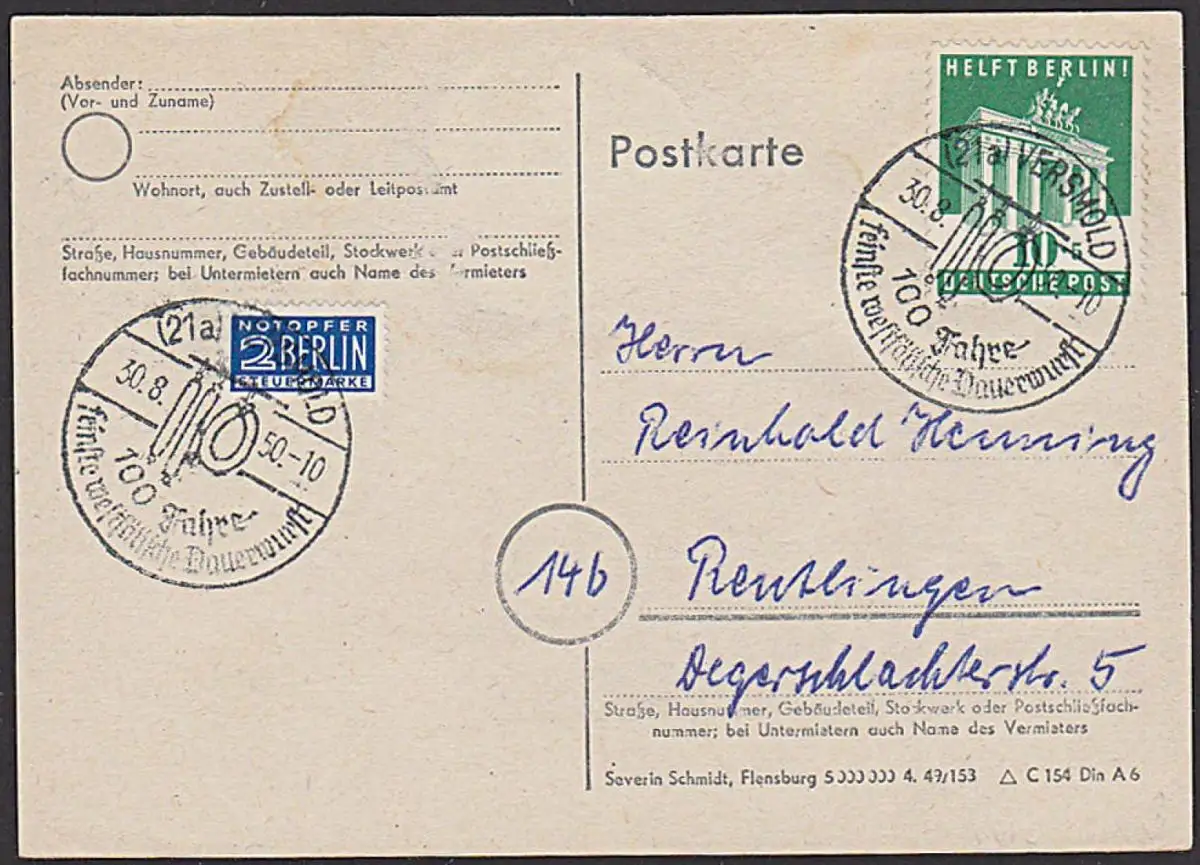 Absender:
(Vor- und Zuname)
Wohnort, auch Zustell- oder Leitpostamt
Straße, Hausnummer, Gebäudeteil, Stockwerk oder Postschließ-
fachnummer; bei Untermietern auch Name des Vermieters
NOTOPFER
2 BERLIN
STEUERMARKE
(21a) VERSMOLD
30.8. 50.-10
100 Jahre
feinste westfälische Dauerwurst
Postkarte
HELFT BERLIN!
10+5
DEUTSCHE POST
(21a) VERSMOLD
30.8. -10
100 Jahre
feinste westfälische Dauerwurst
Herrn
Reinhold Henning
14b Reutlingen
Degerschlachterstr. 5
Straße, Hausnummer, Gebäudeteil, Stockwerk oder Postschließfach-
nummer; bei Untermietern auch Name des Vermieters
Severin Schmidt, Flensburg 5000000 4. 49/153 △ C 154 Din A 6